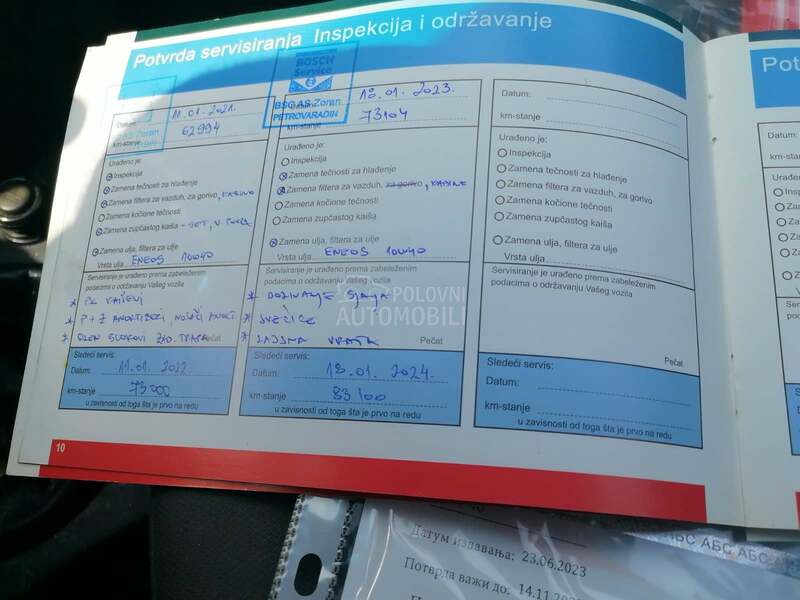 Potvrda servisiranja Inspekcija i održavanje
Pot
BOSCH
Service
BSC AS Zoran
PETROVARADIN
Datum: 11.01.2021.
km-stanje 62994
Urađeno je:
Inspekcija
Zamena tečnosti za hlađenje
Zamena filtera za vazduh, za gorivo, KABINE
Zamena kočione tečnosti
Zamena zupčastog kaiša - SET, V. PUMPA
Zamena ulja, filtera za ulje
Vrsta ulja ENEOS 10W40
Servisiranje je urađeno prema zabeleženim
podacima o održavanju Vašeg vozila
* PK KAIŠEVI
* P+Z AMORTIZERI, NOSAČI AMORT.
* SILEN BLOKOVI ZAD. TRAPA
Sledeći servis:
Datum: 11.01.2022
km-stanje 73000
u zavisnosti od toga šta je prvo na redu
18.01.2023.
73104
Urađeno je:
Inspekcija
Zamena tečnosti za hlađenje
Zamena filtera za vazduh, za gorivo, KABINE
Zamena kočione tečnosti
Zamena zupčastog kaiša
Zamena ulja, filtera za ulje
Vrsta ulja ENEOS 10W40
Servisiranje je urađeno prema zabeleženim
podacima o održavanju Vašeg vozila
* SVEĆICE
* ZAJSNA VRATA
Pečat
Sledeći servis:
Datum: 18.01.2024.
km-stanje 83100
u zavisnosti od toga šta je prvo na redu
Datum:
km-stanje:
Urađeno je:
Inspekcija
Zamena tečnosti za hlađenje
Zamena filtera za vazduh, za gorivo
Zamena kočione tečnosti
Zamena zupčastog kaiša
Zamena ulja, filtera za ulje
Vrsta ulja
Servisiranje je urađeno prema zabeleženim
podacima o održavanju Vašeg vozila
Pečat
Sledeći servis:
Datum:
km-stanje
u zavisnosti od toga šta je prvo na redu
Datum:
km-stanje
Urađeno je:
Inspek
Zamen
Zamen
Zamen
Zamen
Zamen
Vrsta u
Servisira
podacim
Sledeć
Datum
km-sta
POLOVNI
AUTOMOBILI
10
АБС АБС АБС
Датум издавања: 23.06.2023
Потврда важи до: 14.11.20